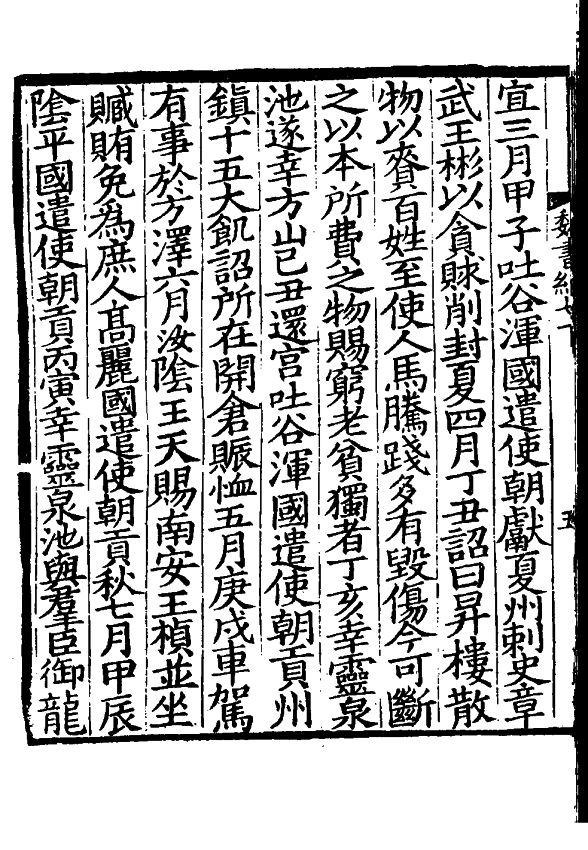 魏書紀七下
五
宣三月甲子吐谷渾國遣使朝獻夏州刺史章
武王彬以貪賕削封夏四月丁丑詔曰昇樓散
物以賚百姓至使人馬騰踐多有毀傷今可斷
之以本所費之物賜窮老貧獨者丁亥幸靈泉
池遂幸方山己丑還宮吐谷渾國遣使朝貢州
鎮十五大飢詔所在開倉賑恤五月庚戌車駕
有事於方澤六月汝陰王天賜南安王楨並坐
贓賄免為庶人高麗國遣使朝貢秋七月甲辰
陰平國遣使朝貢丙寅幸靈泉池與羣臣御龍